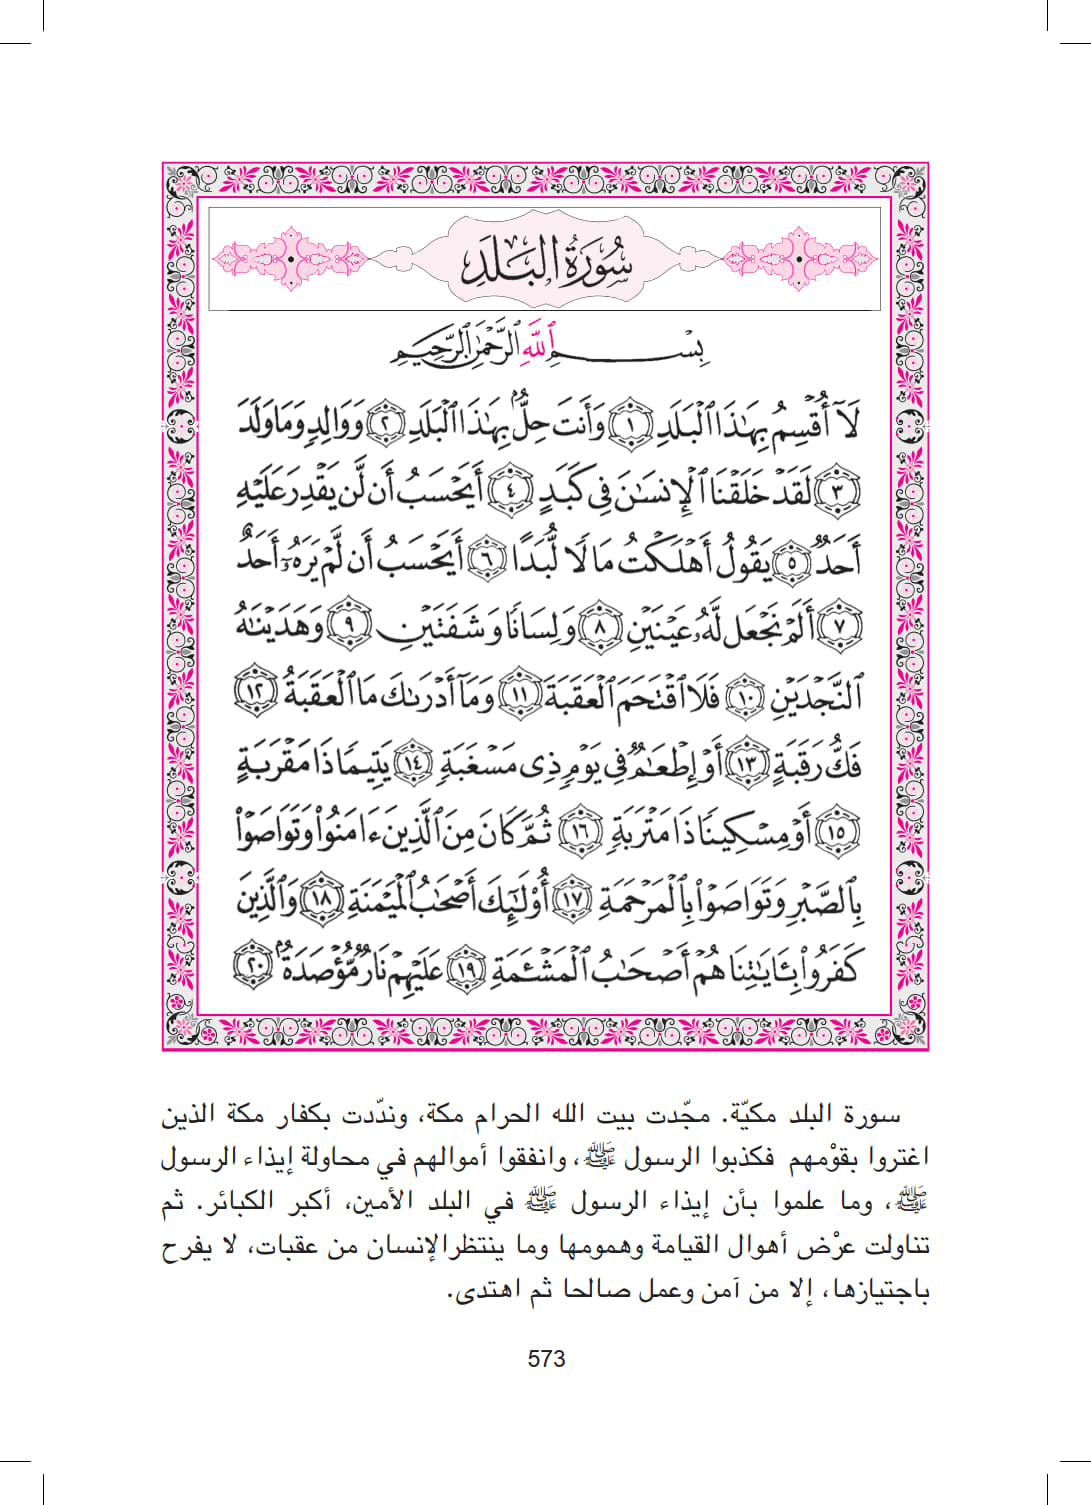 سُورَةُ البَلَدِ
بِسْمِ ٱللَّهِ ٱلرَّحْمَٰنِ ٱلرَّحِيمِ
لَآ أُقْسِمُ بِهَٰذَا ٱلْبَلَدِ ١ وَأَنتَ حِلٌّۢ بِهَٰذَا ٱلْبَلَدِ ٢ وَوَالِدٍ وَمَا وَلَدَ
٣ لَقَدْ خَلَقْنَا ٱلْإِنسَٰنَ فِي كَبَدٍ ٤ أَيَحْسَبُ أَن لَّن يَقْدِرَ عَلَيْهِ
أَحَدٌ ٥ يَقُولُ أَهْلَكْتُ مَالًا لُّبَدًا ٦ أَيَحْسَبُ أَن لَّمْ يَرَهُۥٓ أَحَدٌ
٧ أَلَمْ نَجْعَل لَّهُۥ عَيْنَيْنِ ٨ وَلِسَانًا وَشَفَتَيْنِ ٩ وَهَدَيْنَٰهُ
ٱلنَّجْدَيْنِ ١٠ فَلَا ٱقْتَحَمَ ٱلْعَقَبَةَ ١١ وَمَآ أَدْرَىٰكَ مَا ٱلْعَقَبَةُ ١٢
فَكُّ رَقَبَةٍ ١٣ أَوْ إِطْعَٰمٌ فِي يَوْمٍ ذِي مَسْغَبَةٍ ١٤ يَتِيمًا ذَا مَقْرَبَةٍ
١٥ أَوْ مِسْكِينًا ذَا مَتْرَبَةٍ ١٦ ثُمَّ كَانَ مِنَ ٱلَّذِينَ ءَامَنُوا۟ وَتَوَاصَوْا۟
بِٱلصَّبْرِ وَتَوَاصَوْا۟ بِٱلْمَرْحَمَةِ ١٧ أُو۟لَٰٓئِكَ أَصْحَٰبُ ٱلْمَيْمَنَةِ ١٨ وَٱلَّذِينَ
كَفَرُوا۟ بِـَٔايَٰتِنَا هُمْ أَصْحَٰبُ ٱلْمَشْـَٔمَةِ ١٩ عَلَيْهِمْ نَارٌ مُّؤْصَدَةٌۢ ٢٠
سورة البلد مكيّة. مجّدت بيت الله الحرام مكة، وندّدت بكفار مكة الذين
اغتروا بقوْمهم فكذبوا الرسول ﷺ، وانفقوا أموالهم في محاولة إيذاء الرسول
ﷺ، وما علموا بأن إيذاء الرسول ﷺ في البلد الأمين، أكبر الكبائر. ثم
تناولت عرْض أهوال القيامة وهمومها وما ينتظرالإنسان من عقبات، لا يفرح
باجتيازها، إلا من آمن وعمل صالحا ثم اهتدى.
573